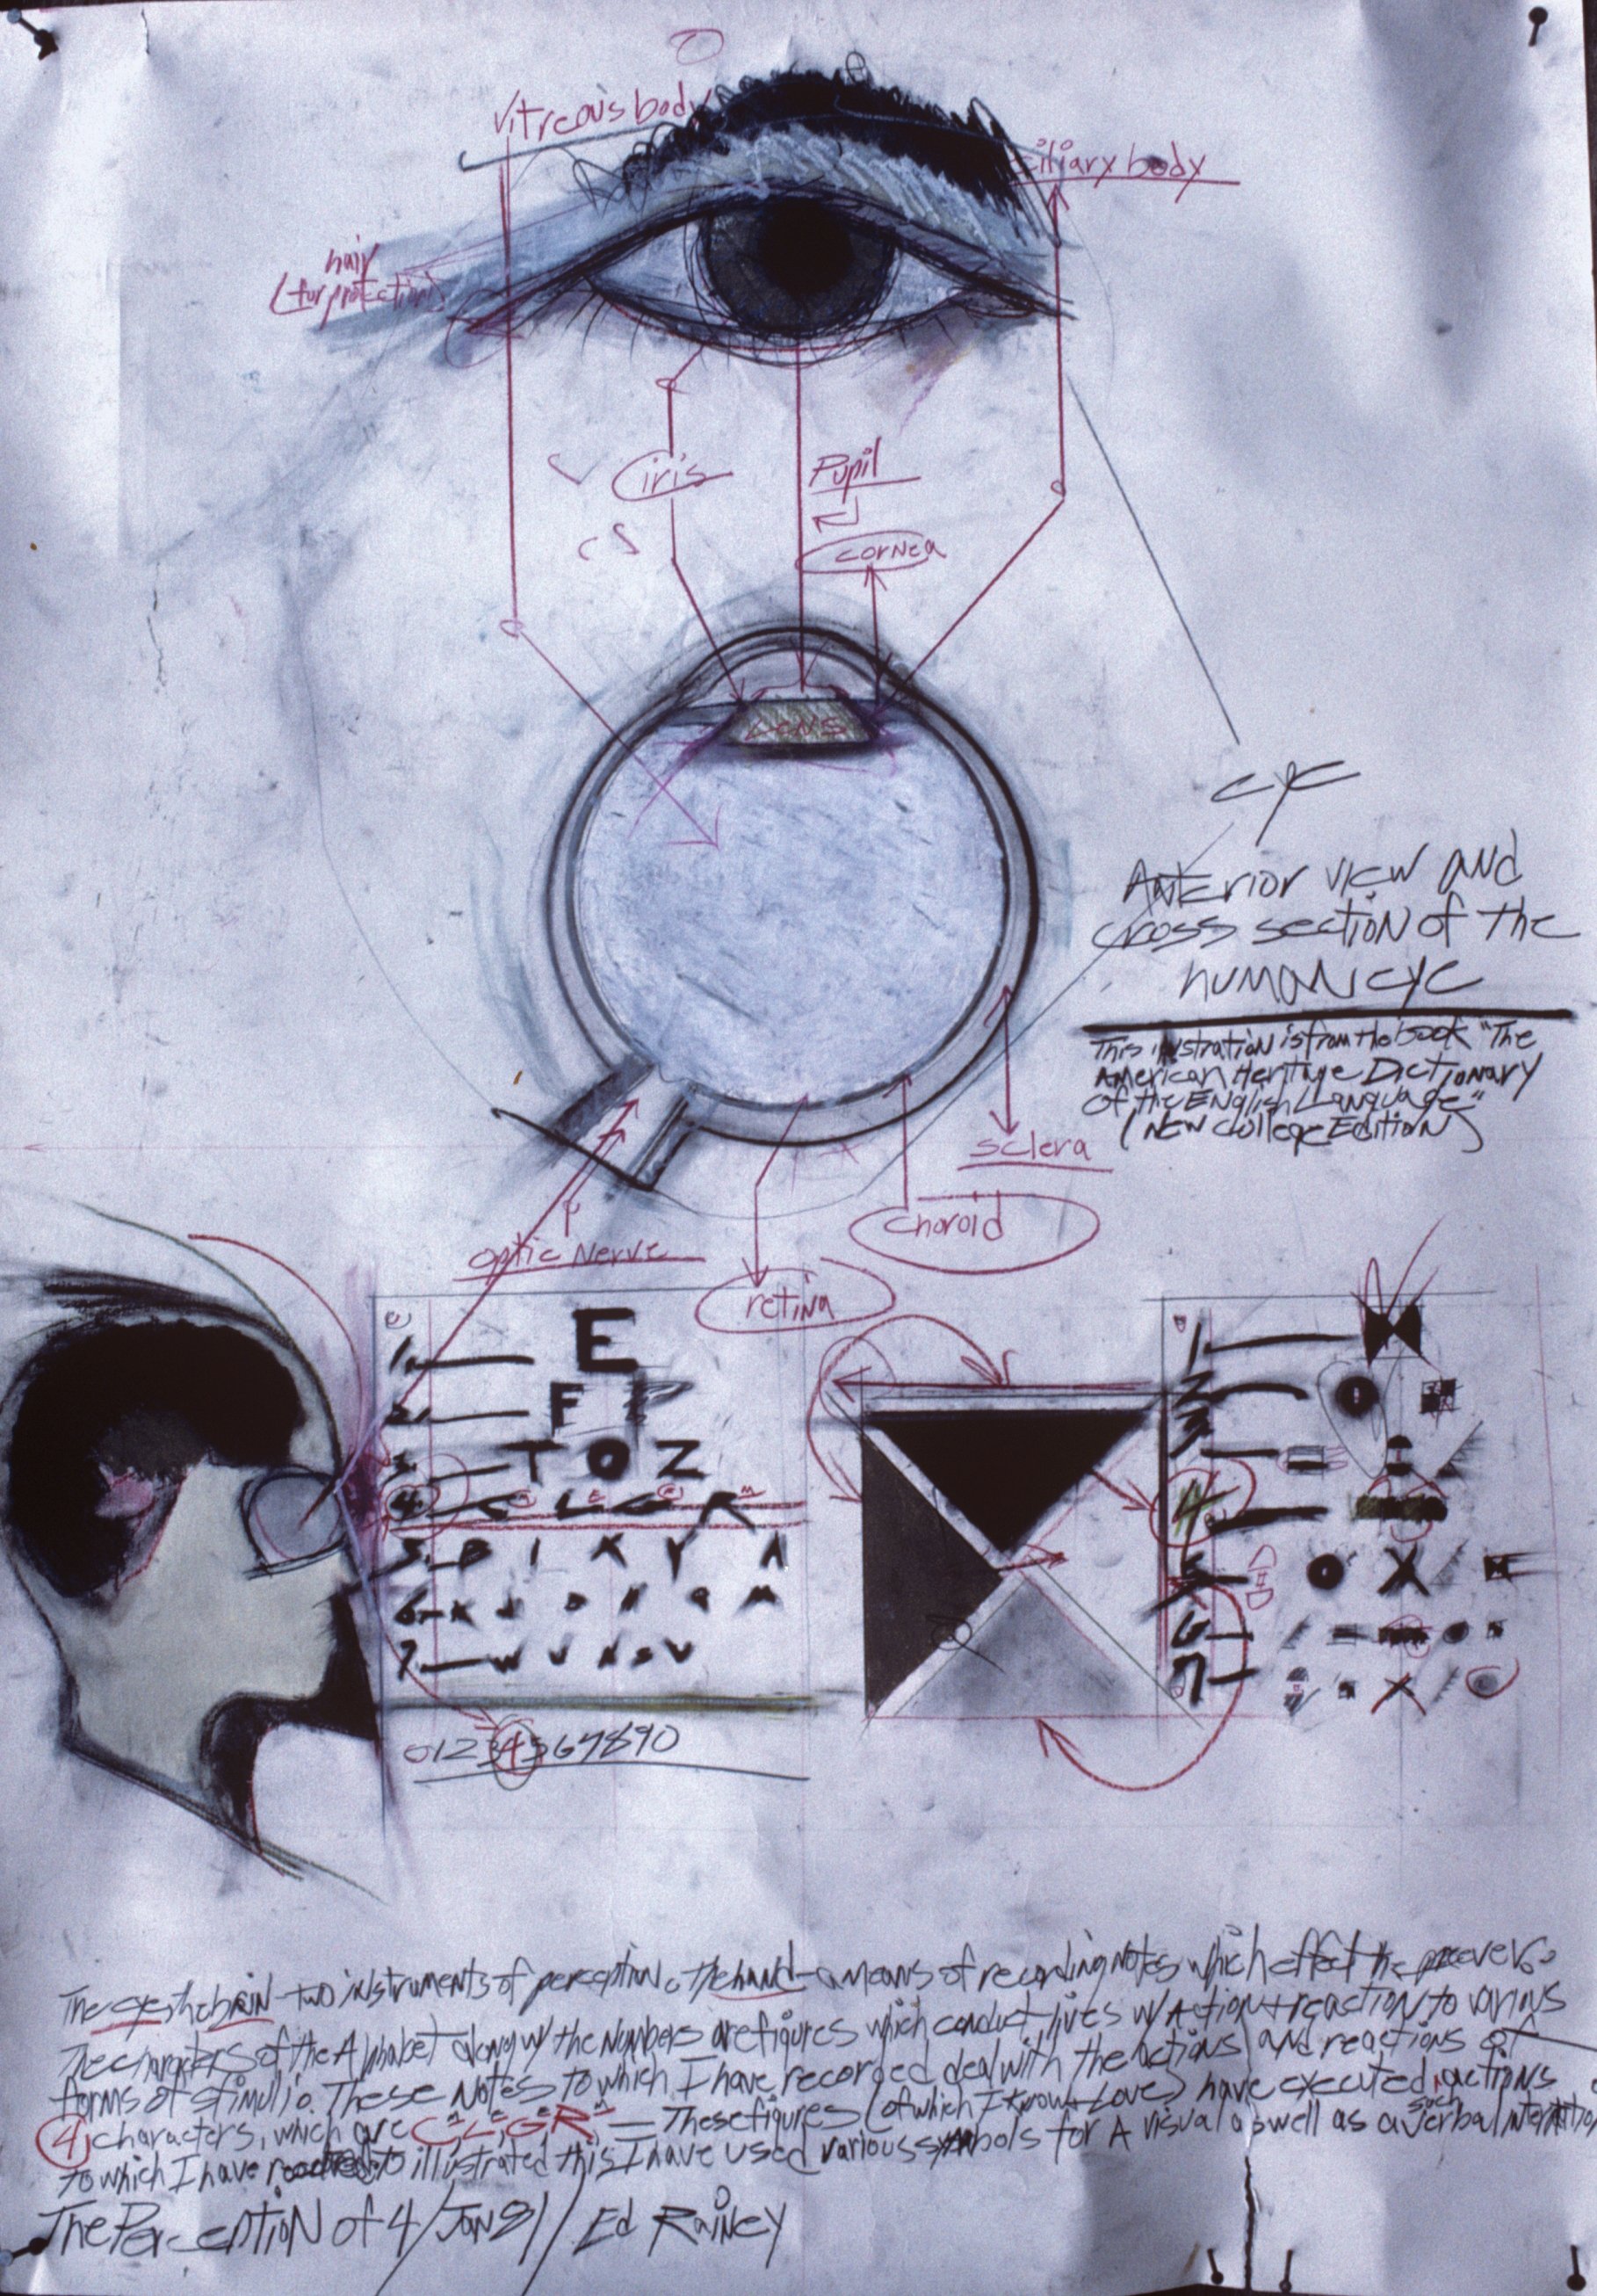 vitreous body
ciliary body
hair
(for protection)
iris
Pupil
cs
cornea
Lens
eye
Anterior view and
cross section of the
human eye
This illustration is from the book "The
American Heritage Dictionary
of the English Language"
(New College Edition)
sclera
choroid
optic nerve
retina
1. E
2. F P
3. T O Z
4. C L G R
5. B I X Y A
6.
7. W V X O V
0 1 2 3 4 5 6 7 8 9 0
1
2
3
4
5
6
7
The eye, the brain - two instruments of perception. The hand - a means of recording notes which effect the
The characters of the Alphabet along w/ the numbers are figures which conduct lives w/ Action + reaction to various
forms of stimuli. These notes to which I have recorded deal with the actions and reactions of
4, characters, which are C, L, G, R, These figures (of which I know + Love) have executed, actions
to which I have to illustrated this I have used various symbols for A visual as well as a verbal
The Perception of 4/Jan 81/ Ed Rainey